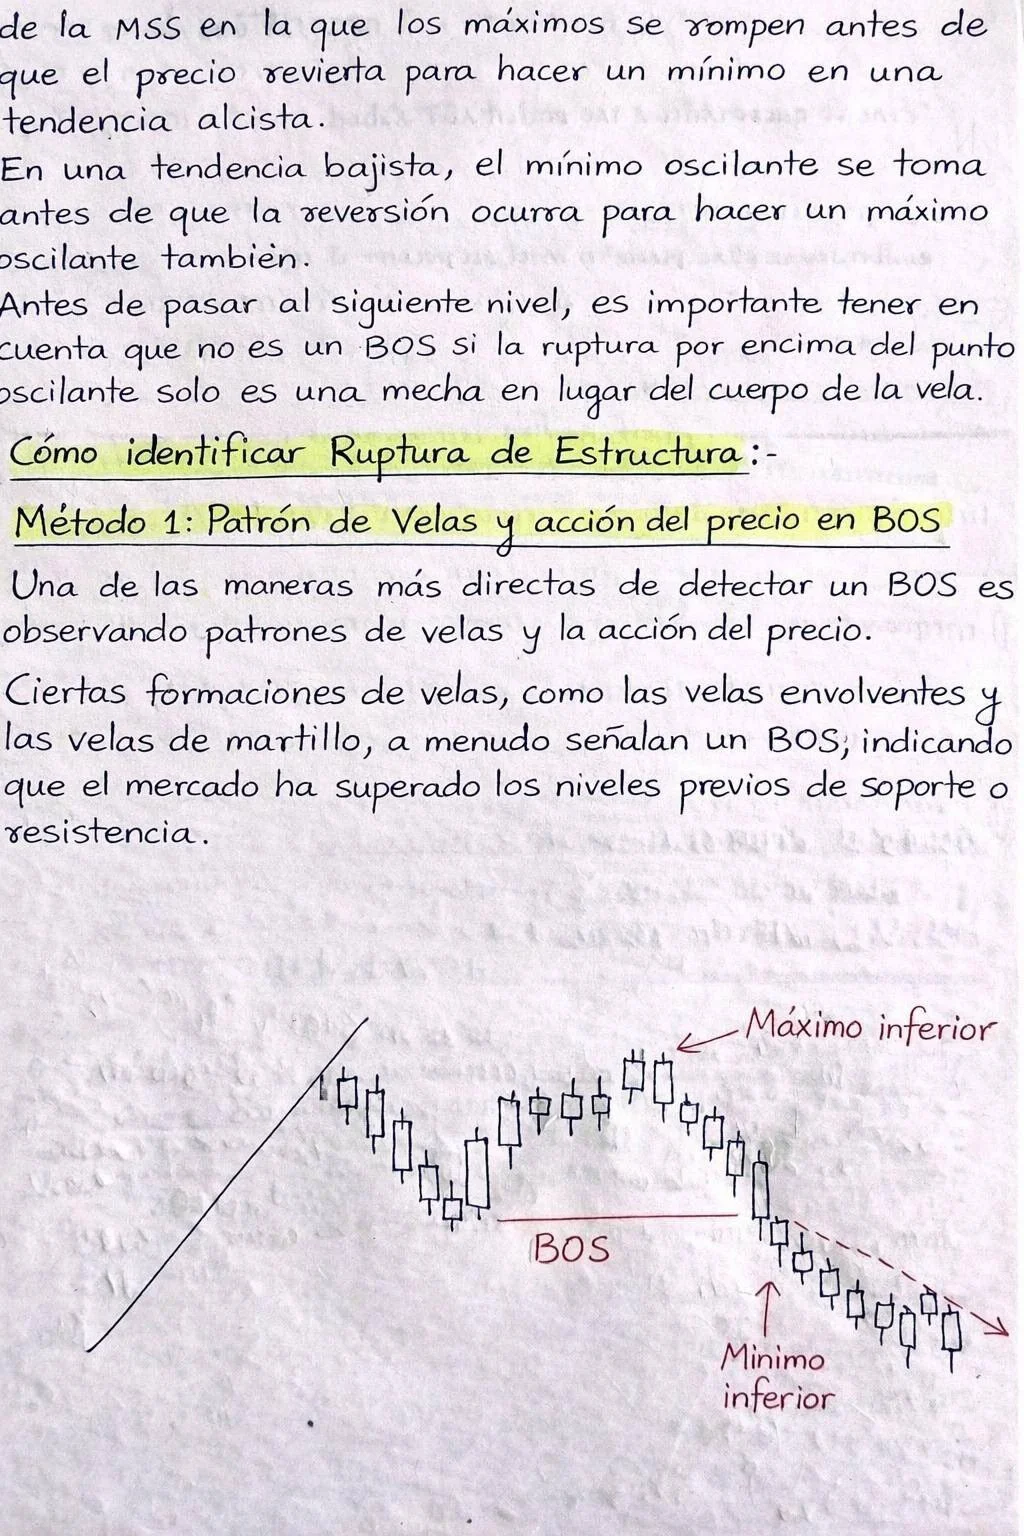 de la MSS en la que los máximos se rompen antes de
que el precio revierta para hacer un mínimo en una
tendencia alcista.
En una tendencia bajista, el mínimo oscilante se toma
antes de que la reversión ocurra para hacer un máximo
oscilante también.
Antes de pasar al siguiente nivel, es importante tener en
cuenta que no es un BOS si la ruptura por encima del punto
oscilante solo es una mecha en lugar del cuerpo de la vela.
Cómo identificar Ruptura de Estructura:-
Método 1: Patrón de Velas y acción del precio en BOS
Una de las maneras más directas de detectar un BOS es
observando patrones de velas y la acción del precio.
Ciertas formaciones de velas, como las velas envolventes y
las velas de martillo, a menudo señalan un BOS, indicando
que el mercado ha superado los niveles previos de soporte o
resistencia.
Máximo inferior
BOS
Minimo
inferior